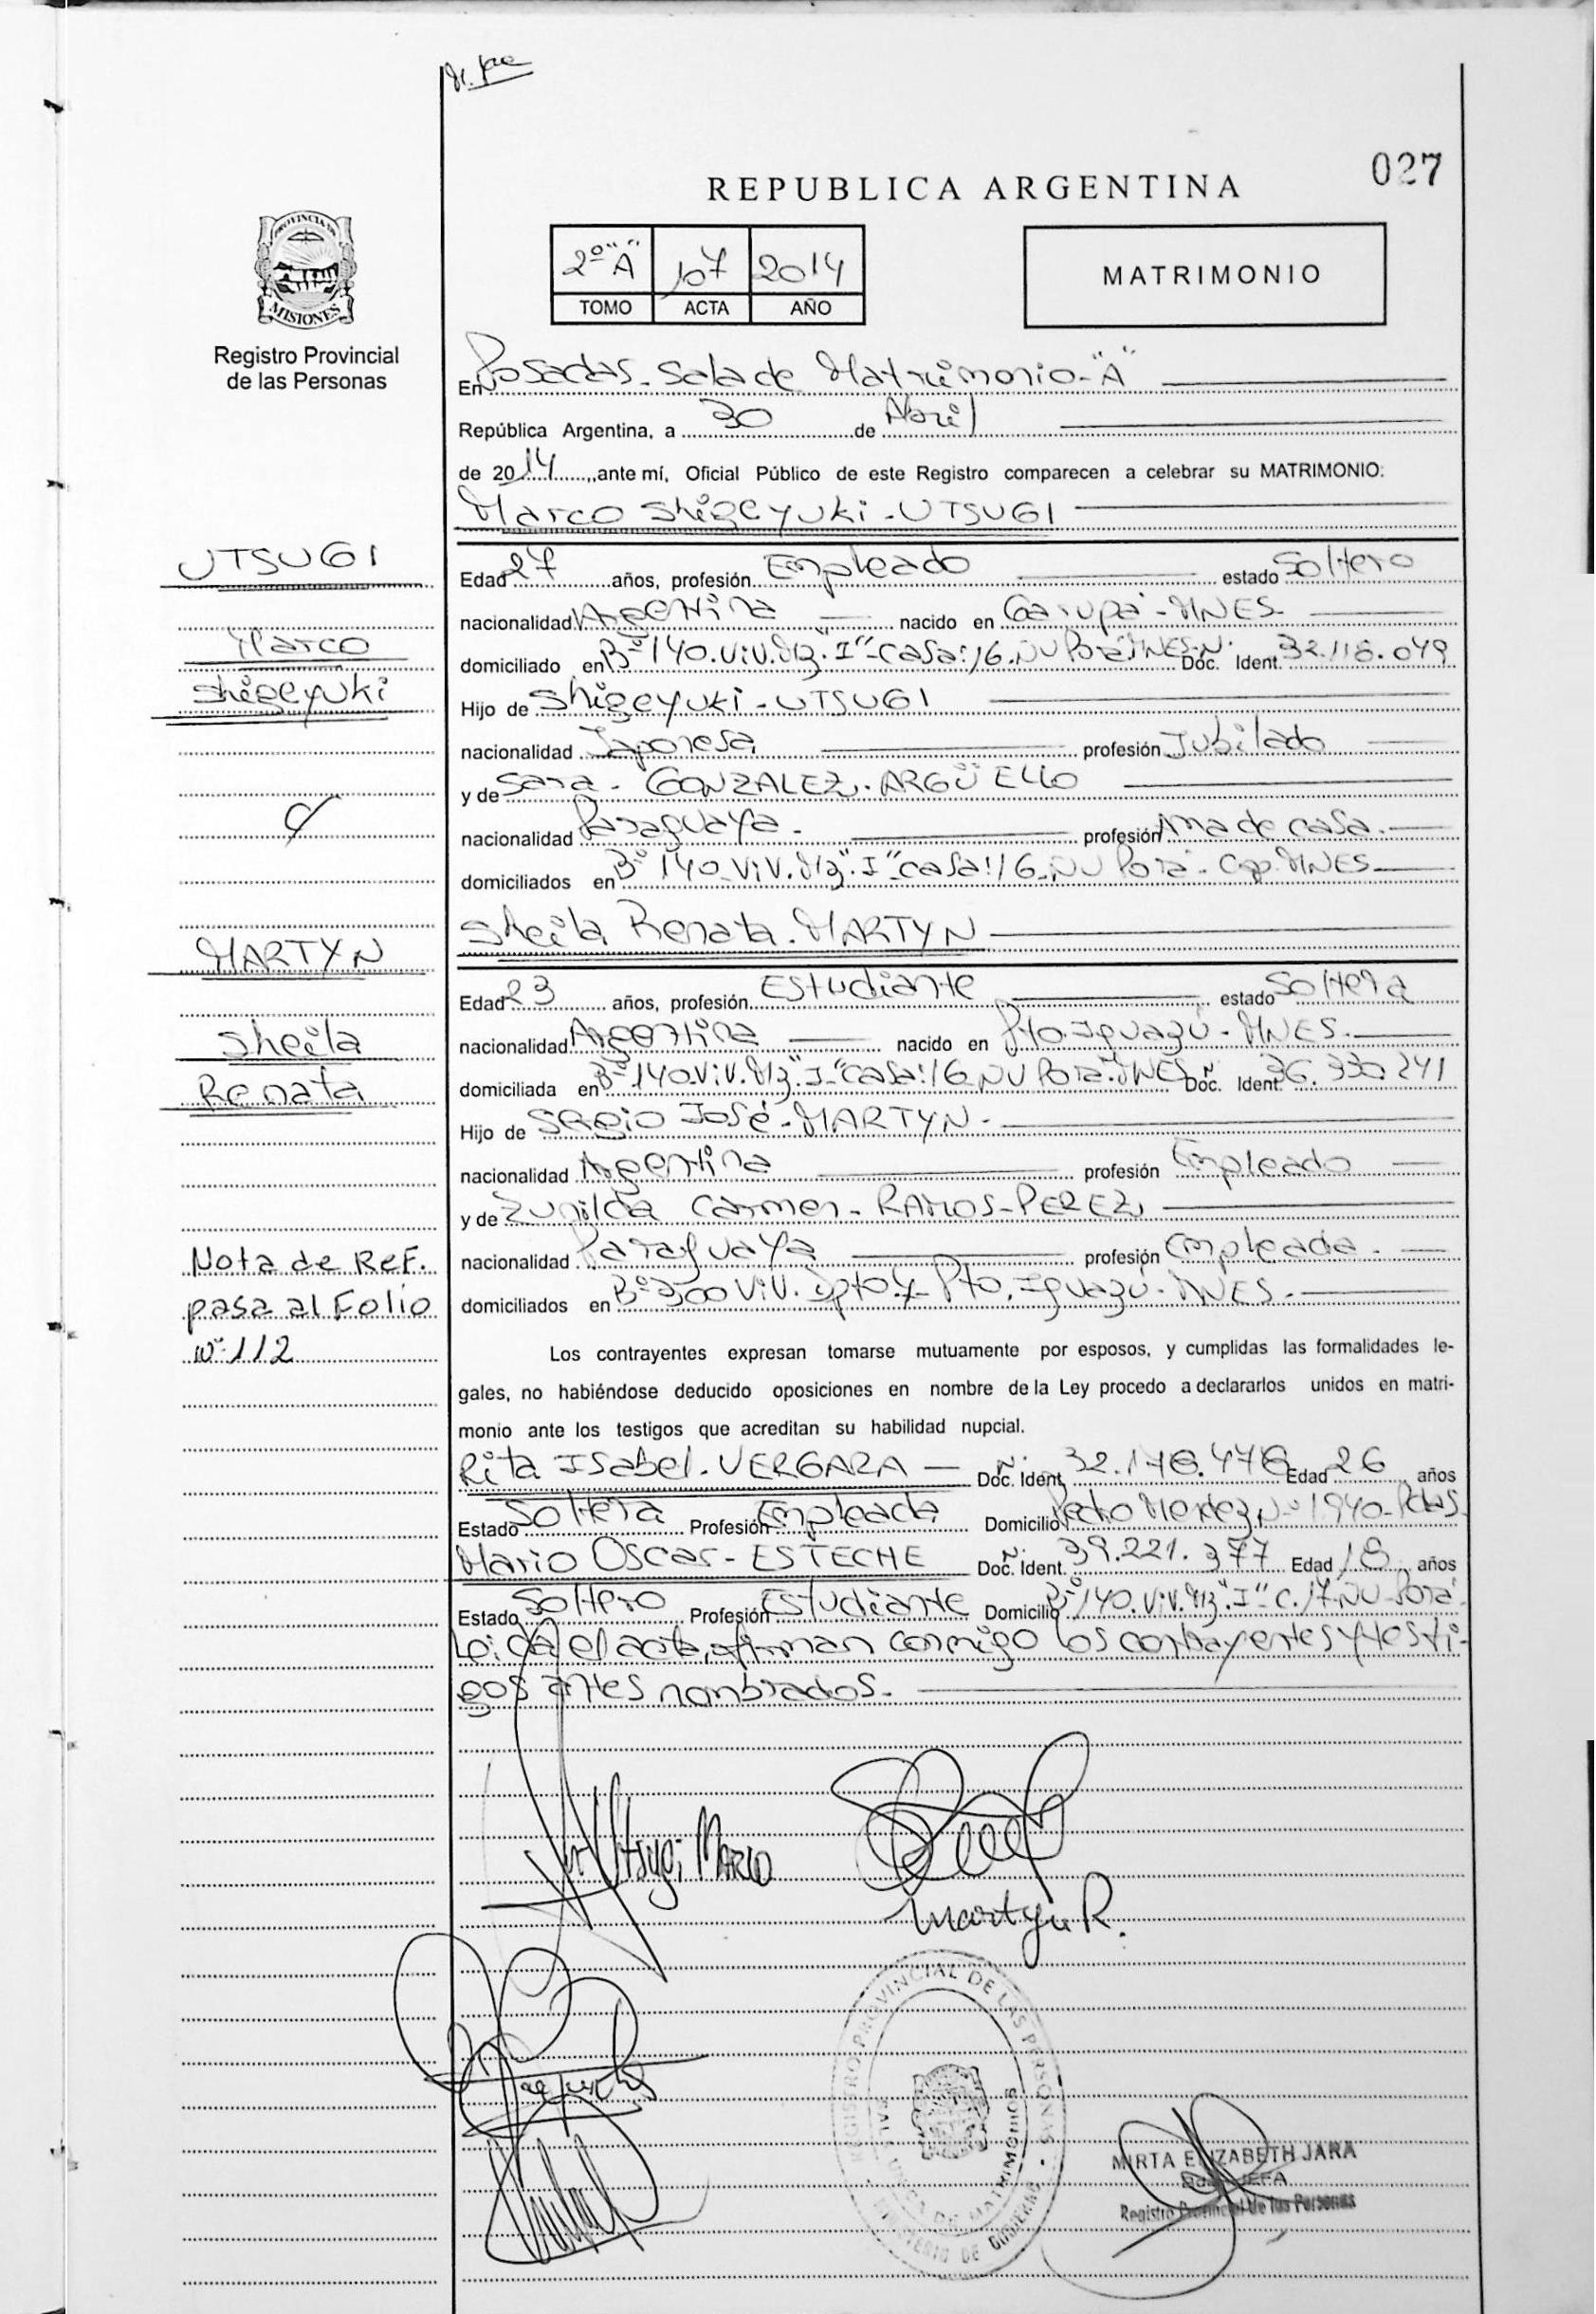 027
REPUBLICA ARGENTINA
PROVINCIA DE
MISIONES
Registro Provincial
de las Personas
2º "A" 107 2014
TOMO ACTA AÑO
MATRIMONIO
En Posadas - Sala de Matrimonio - "A"
República Argentina, a 30 de Abril
de 2014, ante mí, Oficial Público de este Registro comparecen a celebrar su MATRIMONIO:
Marco Shigeyuki - UTSUGI
UTSUGI
Marco
Shigeyuki
Edad 27 años, profesión Empleado estado Soltero
nacionalidad Argentina nacido en Garupá - MNES -
domiciliado en Bº 140. Viv. Mz. "I" - Casa: 16. Ñu Porá. MNES. Doc. Ident. Nº 32.118.049
Hijo de Shigeyuki - UTSUGI
nacionalidad Japonesa profesión Jubilado
y de Sara - GONZALEZ, ARGÜELLO
nacionalidad Paraguaya - profesión Ama de casa. -
domiciliados en Bº 140 - Viv. Mz. "I" Casa: 16 - Ñu Porá - Cap. MNES -
MARTYN
Sheila
Renata
Sheila Renata - MARTYN
Edad 23 años, profesión Estudiante estado Soltera
nacionalidad Argentina nacido en Pto. Iguazú - MNES. -
domiciliada en Bº 140. Viv. Mz. "I" Casa: 16 Ñu Porá. MNES Doc. Ident. Nº 36.330.241
Hijo de Sergio José - MARTYN -
nacionalidad Argentina profesión Empleado -
y de Zunilda Carmen - RAMOS - PEREZ,
nacionalidad Paraguaya profesión Empleada. -
domiciliados en Bº 300 Viv. Dpto. Pto. Iguazú - MNES. -
Nota de Ref.
pasa al Folio
Nº 112
Los contrayentes expresan tomarse mutuamente por esposos, y cumplidas las formalidades le-
gales, no habiéndose deducido oposiciones en nombre de la Ley procedo a declararlos unidos en matri-
monio ante los testigos que acreditan su habilidad nupcial.
Rita Isabel - VERGARA - Doc. Ident. Nº Edad 26 años
Estado Soltera Profesión Empleada Domicilio Pedro Mendez Nº 1940 - Pdas.
Mario Oscar - ESTECHE Doc. Ident. Nº 39.221.377 Edad 18 años
Estado Soltero Profesión Estudiante Domicilio Bº 140. Viv. Mz. "I" C. 17 Ñu Porá
Leída el acta, firman conmigo los contrayentes y testi-
gos antes nombrados. -
Utsugi Marco
Martyn R.
REGISTRO PROVINCIAL DE LAS PERSONAS
DE MATRIMONIOS
MINISTERIO DE GOBIERNO
MIRTA ELIZABETH JARA
JEFA
Registro Provincial de las Personas